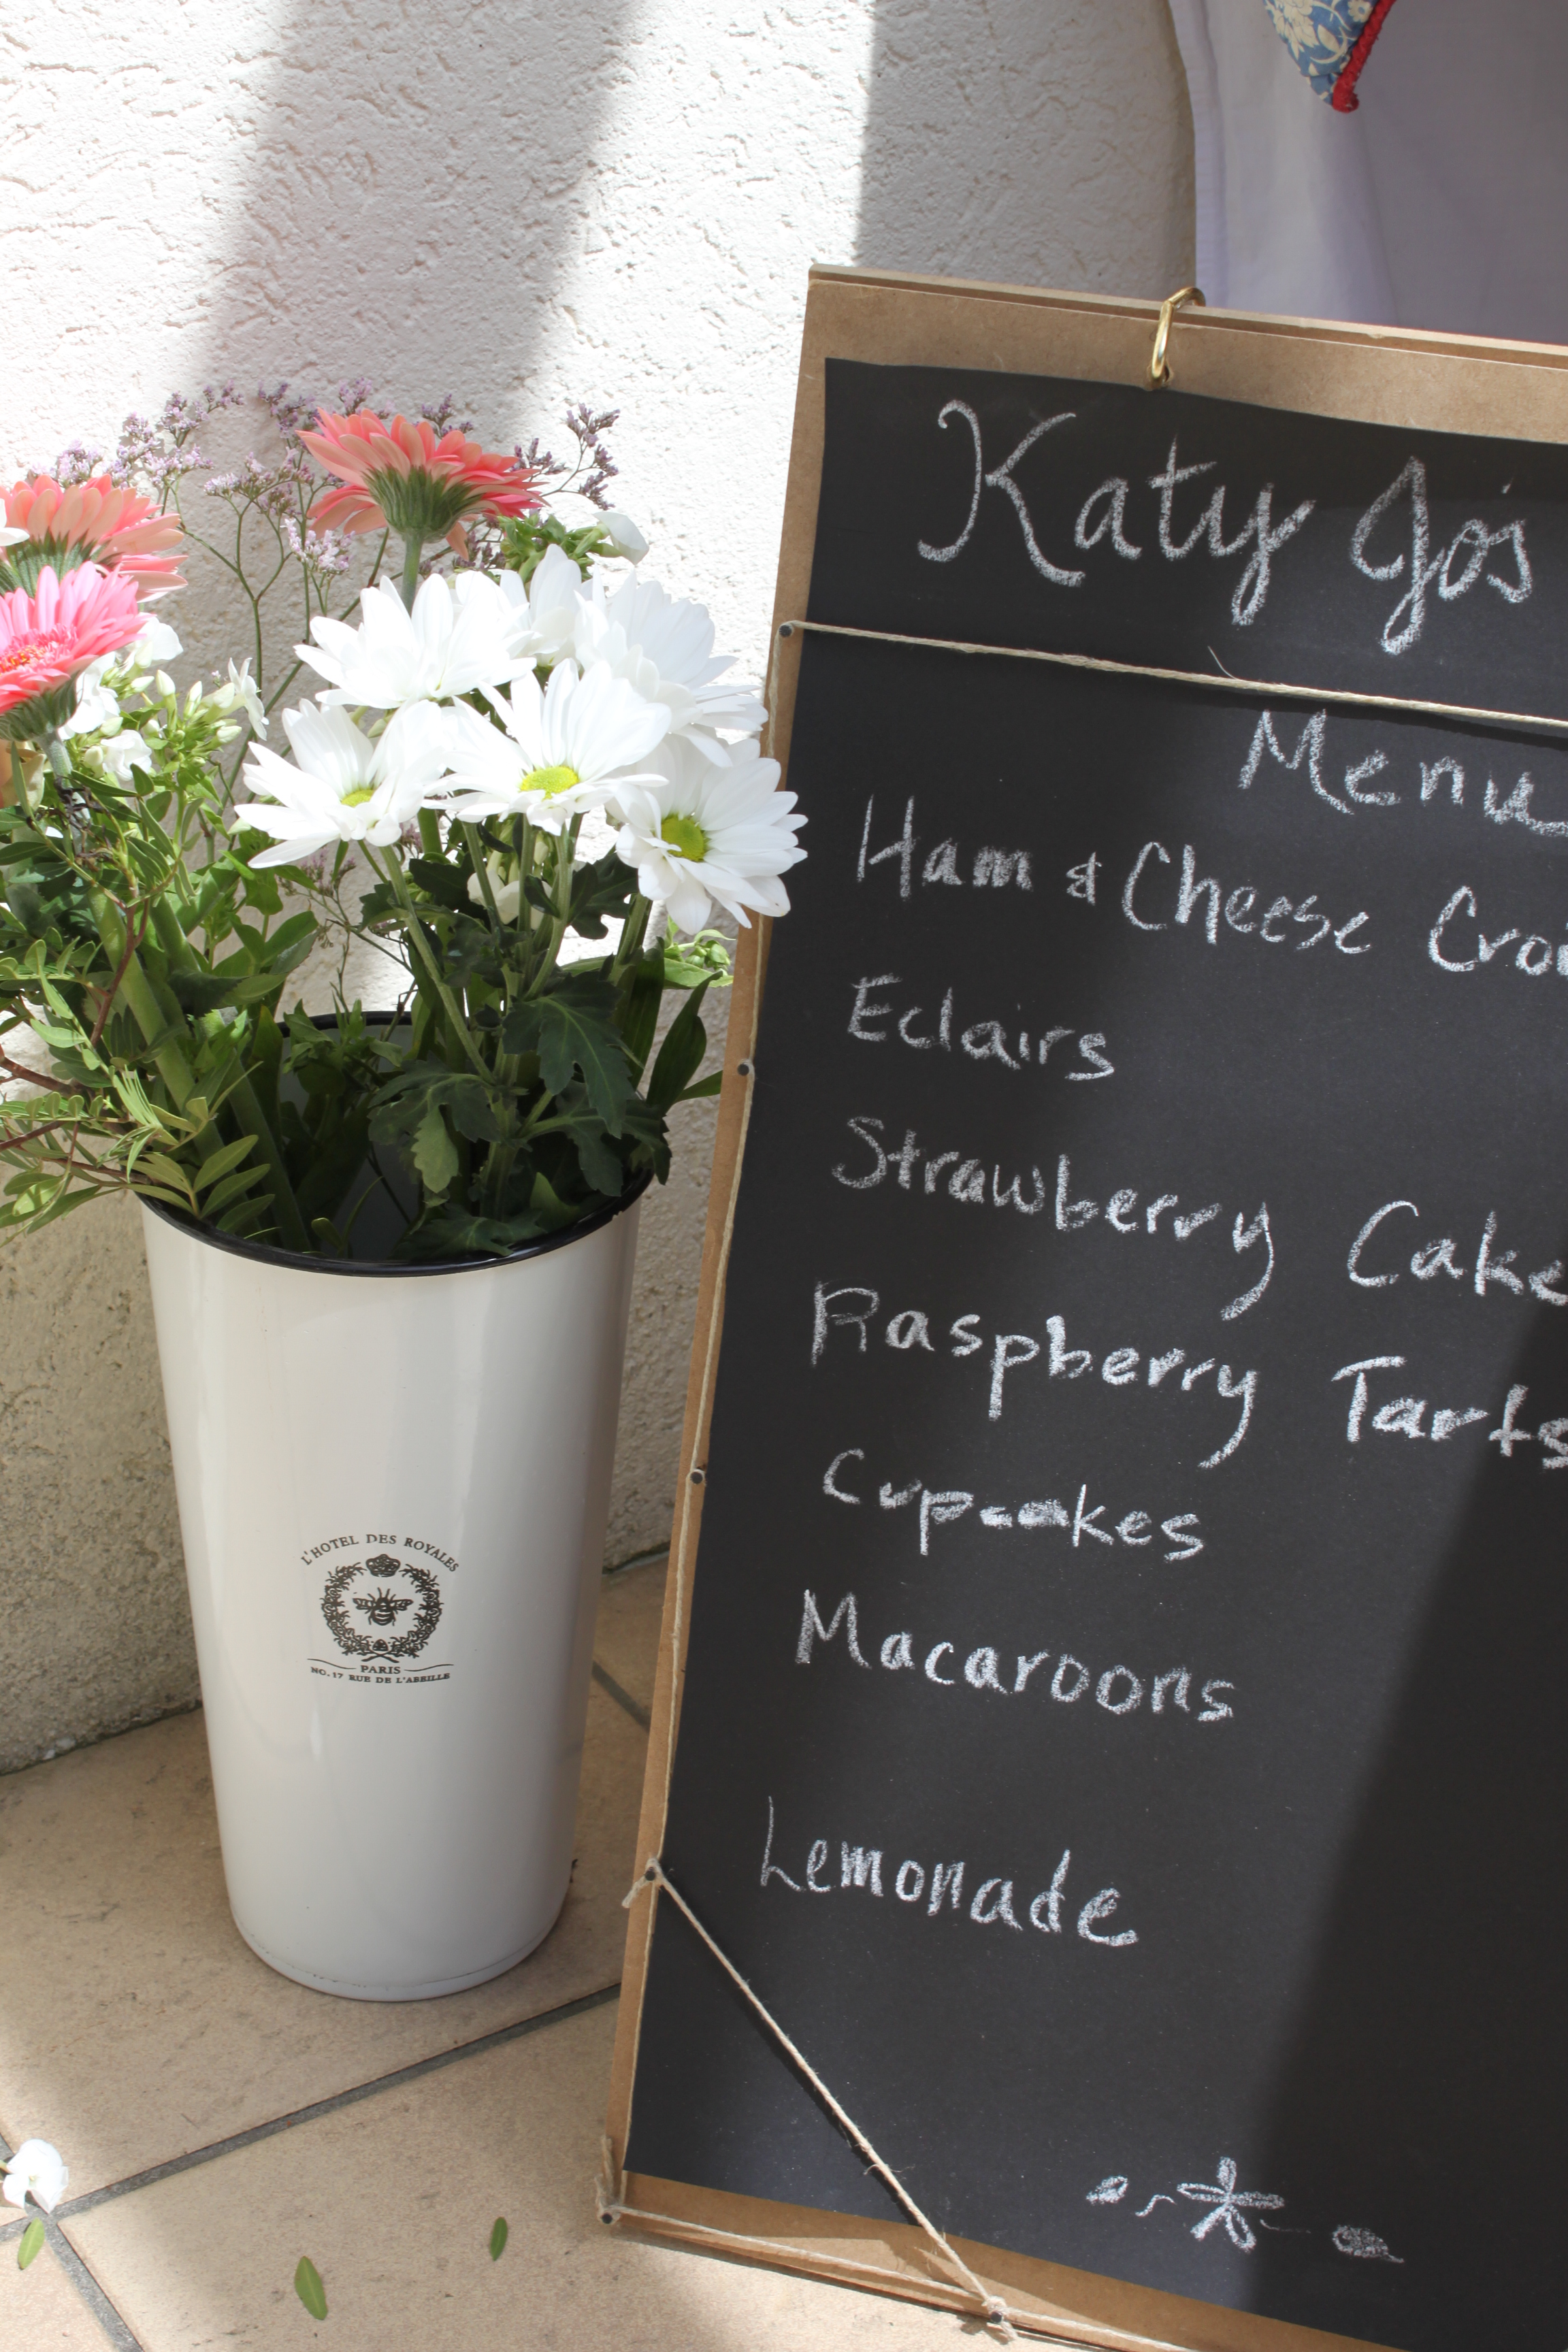 Katy Jo's
Menu
Ham & Cheese Croi
Eclairs
Strawberry Cake
Raspberry Tarts
Cupcakes
Macaroons
Lemonade
L'HOTEL DES ROYALES
PARIS
NO. 17 RUE DE L'ABEILLE